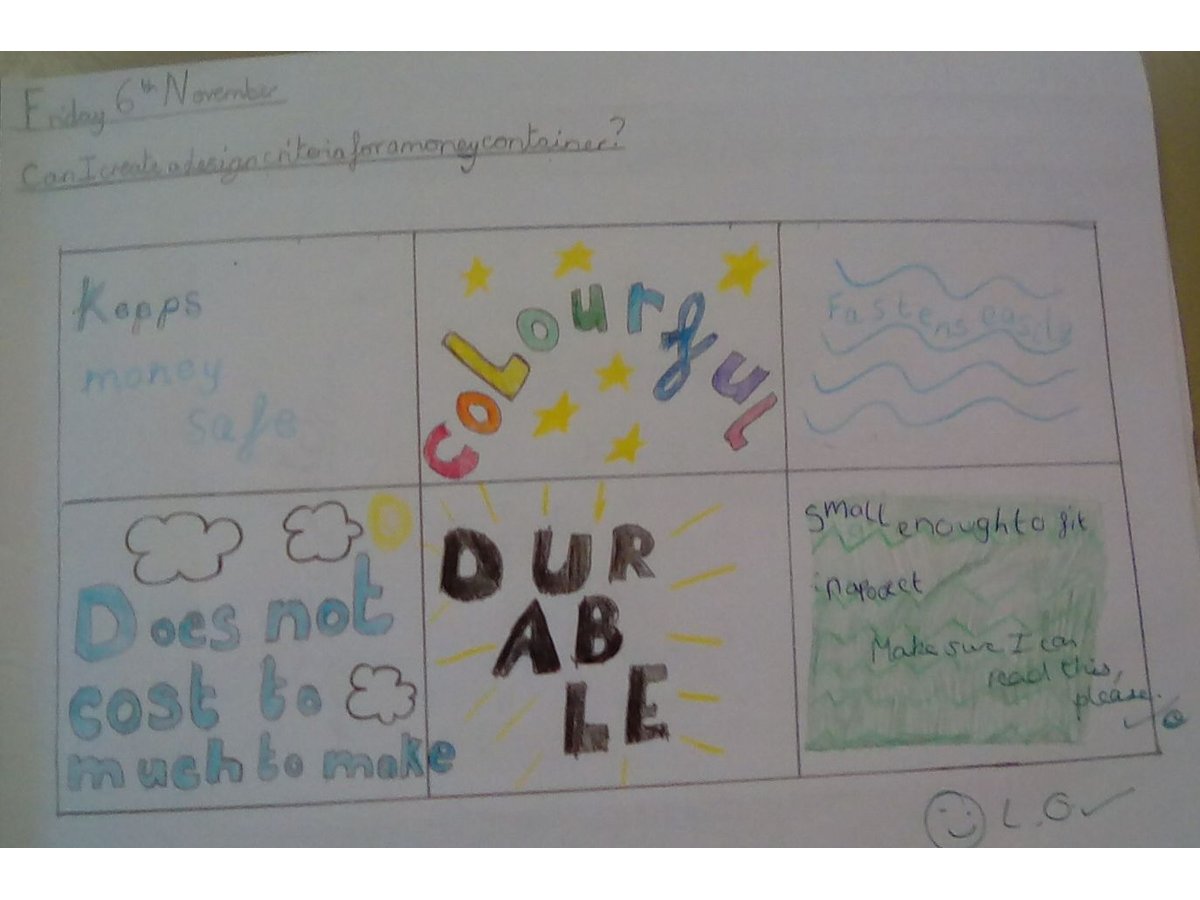 Friday 6th November
Can I create a design criteria for a money container?
Kepps
money
safe
Colourful
Fastens easily
Does not
cost to
much to make
DUR
AB
LE
small enough to fit
in a pocket
Make sure I can
read this,
please.
L.O